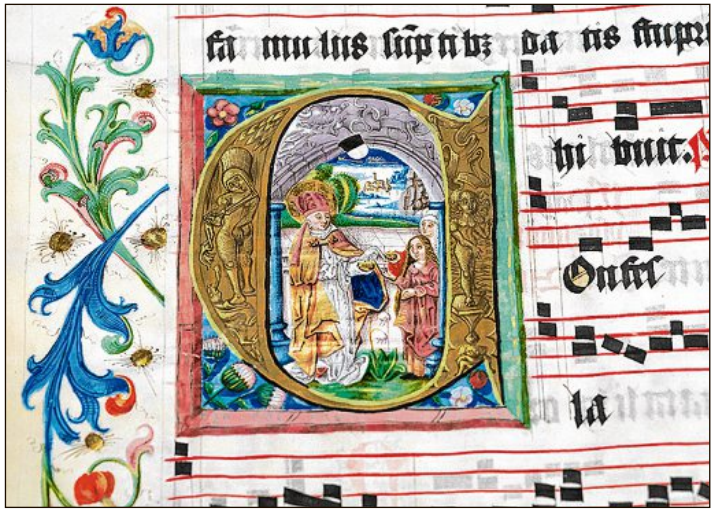 fa mulus sūp ti bz da tis
hi buit.
Onfeſ
la